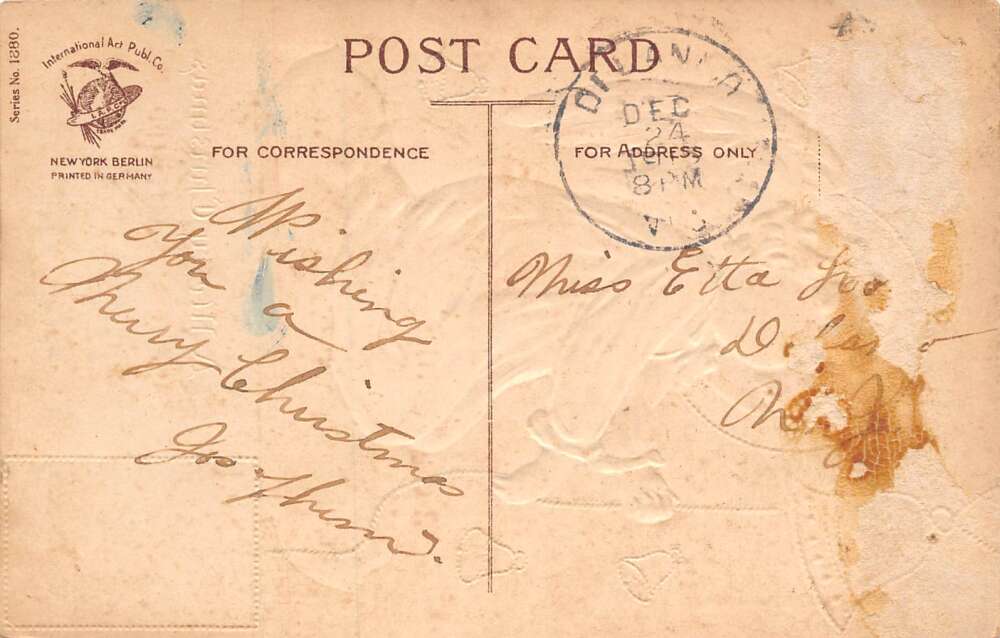 Series No. 1880.
International Art Publ. Co.
I.A.P.Co.
TRADE MARK
NEW YORK BERLIN
PRINTED IN GERMANY
POST CARD
FOR CORRESPONDENCE
FOR ADDRESS ONLY
DEC
24
8 PM
WIS
Wishing
You a
Merry Christmas
Miss Etta